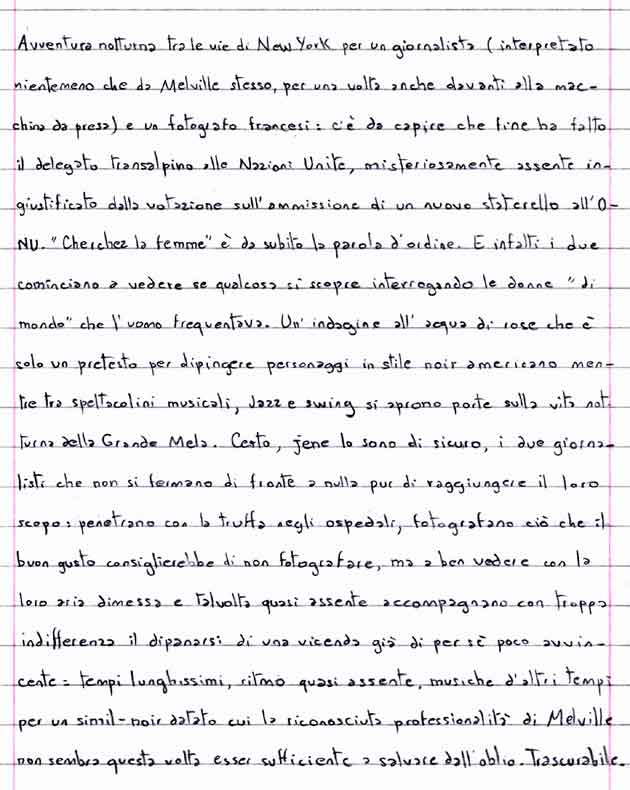 Avventura notturna tra le vie di New York per un giornalista (interpretato
nientemeno che da Melville stesso, per una volta anche davanti alla mac-
china da presa) e un fotografo francesi: c'è da capire che fine ha fatto
il delegato transalpino alle Nazioni Unite, misteriosamente assente in-
giustificato dalla votazione sull'ammissione di un nuovo staterello all'O-
NU. "Cherchez la femme" è da subito la parola d'ordine. E infatti i due
cominciano a vedere se qualcosa si scopre interrogando le donne "di
mondo" che l'uomo frequentava. Un'indagine all'acqua di rose che è
solo un pretesto per dipingere personaggi in stile noir americano men-
tre tra spettacolini musicali, Jazz e swing si aprono porte sulla vita not-
turna della Grande Mela. Certo, jene lo sono di sicuro, i due giorna-
listi che non si fermano di fronte a nulla pur di raggiungere il loro
scopo: penetrano con la truffa negli ospedali, fotografano ciò che il
buon gusto consiglierebbe di non fotografare, ma a ben vedere con la
loro aria dimessa e talvolta quasi assente accompagnano con troppa
indifferenza il dipanarsi di una vicenda già di per sè poco avvin-
cente: tempi lunghissimi, ritmo quasi assente, musiche d'altri tempi
per un simil-noir datato cui la riconosciuta professionalità di Melville
non sembra questa volta esser sufficiente a salvare dall'oblio. Trascurabile.